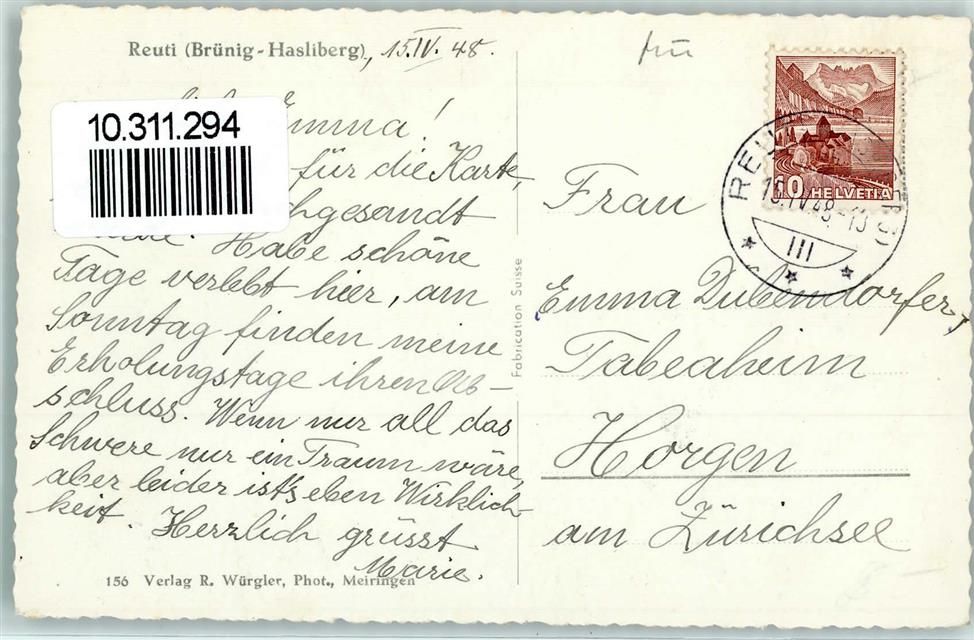 Reuti (Brünig-Hasliberg), 15.IV.48.
10.311.294
Emma!
für die Karte,
Habe schöne
Tage verlebt hier, am
Sonntag finden meine
Erholungstage ihren Ab-
schluss. Wenn nur all das
Schwere nur ein Traum wäre,
aber leider ist's eben Wirklich-
keit. Herzlich grüsst
Marie.
156 Verlag R. Würgler, Phot., Meiringen
Fabrication Suisse
10 HELVETIA
15.IV.48-13
III
Frau
Emma Dübendorfer,
Tabeaheim
Horgen
am Zürichsee